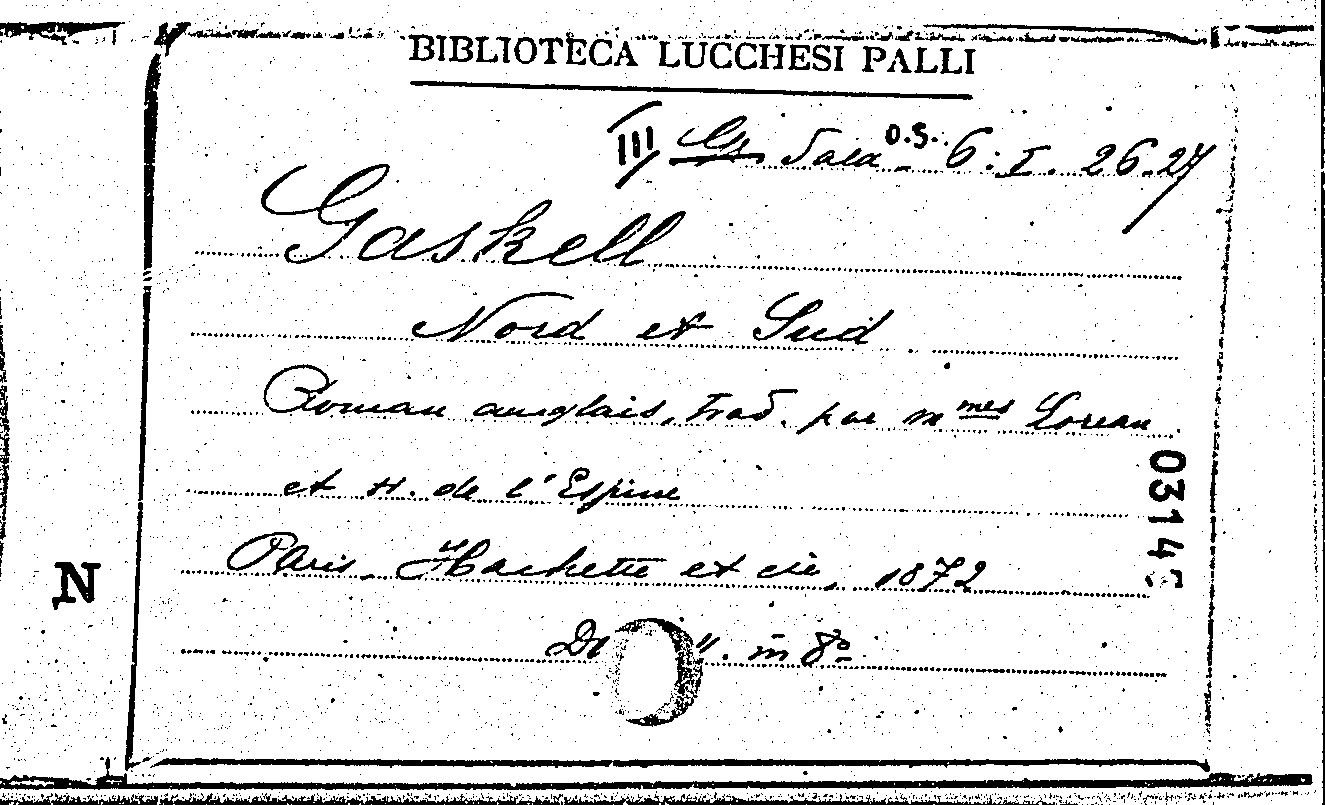 BIBLIOTECA LUCCHESI PALLI
III Sala O.S. 6. I. 26.27
Gaskell
Nord et Sud
Roman anglais, trad. par Mmes Loreau
et H. de l'Espine
03145
Paris, Hachette et cie, 1872
N
in 8º